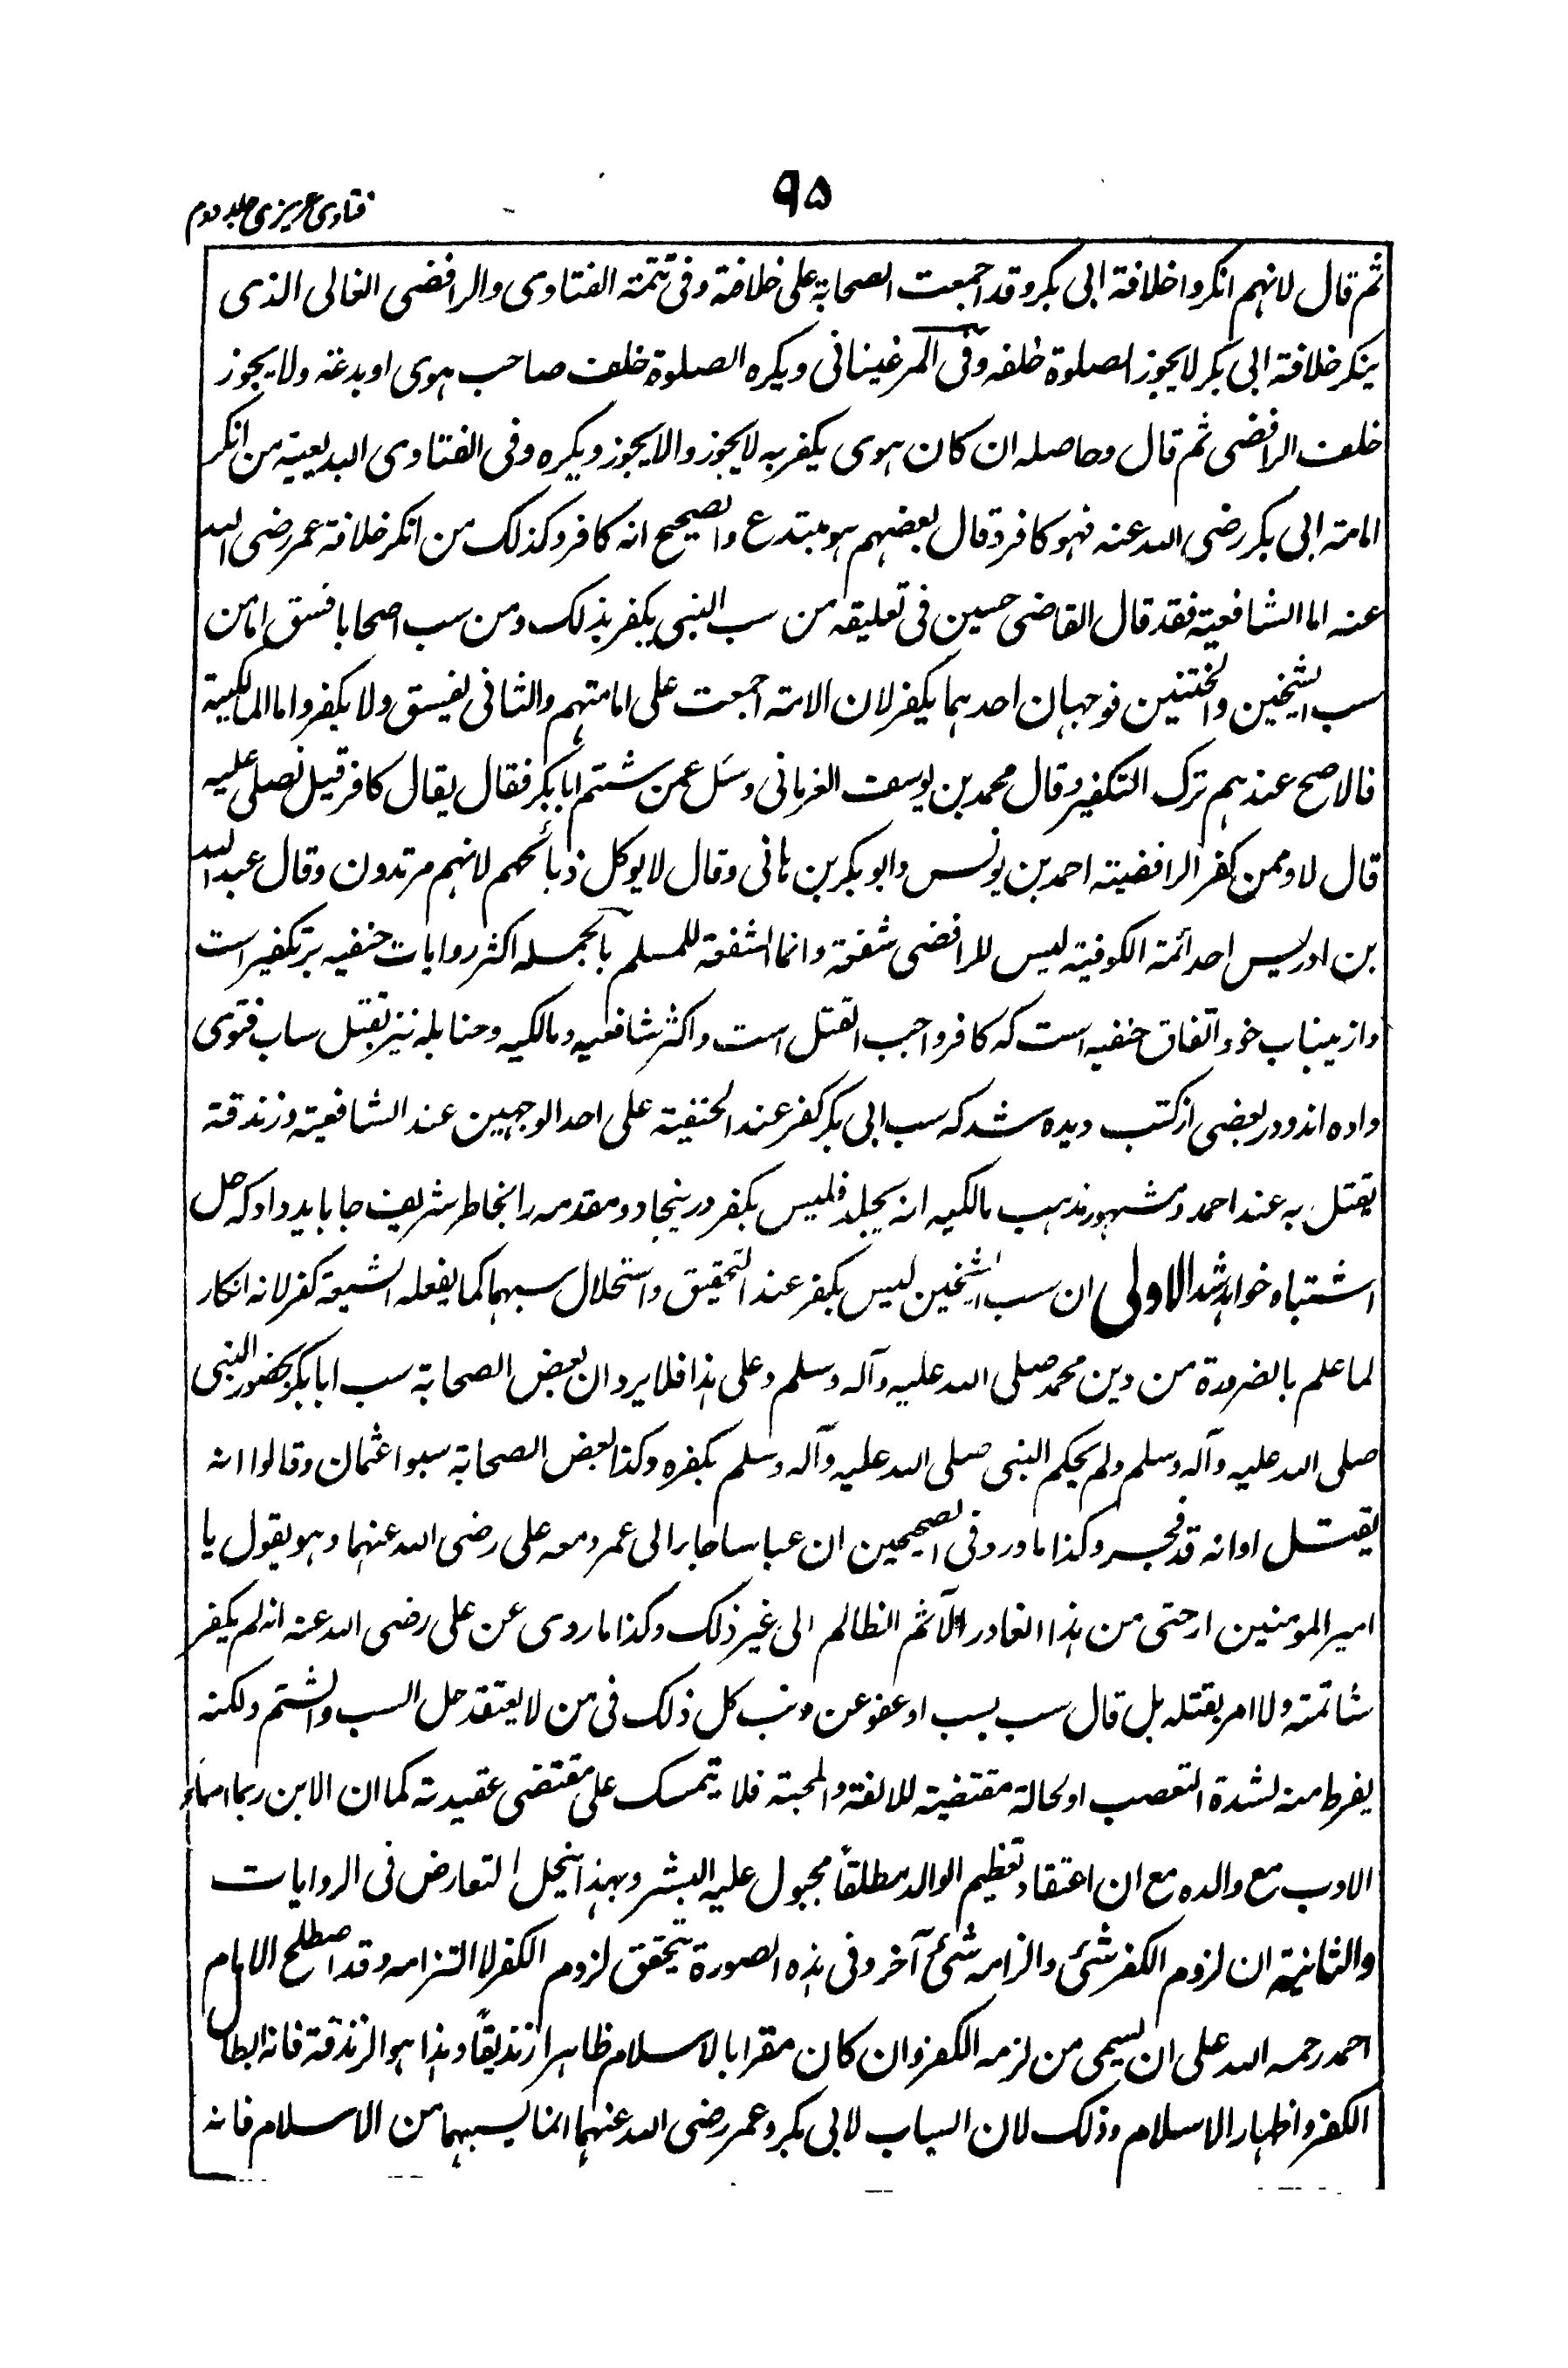 فتاوی عزیزی جلد دوم
۹۵
ثم قال لانہم انکروا خلافۃ ابی بکر وقد اجمعت الصحابۃ علی خلافتہ وفی تتمۃ الفتاوی والرافضی الغالی الذی
ینکر خلافۃ ابی بکر لا یجوز الصلوۃ خلفہ وفی المرغینانی ویکرہ الصلوۃ خلف صاحب ہوی او بدعۃ ولا یجوز
خلف الرافضی ثم قال وحاصلہ ان کان ہوی یکفر بہ لا یجوز والا یجوز ویکرہ وفی الفتاوی البدیعیۃ من انکر
امامۃ ابی بکر رضی اللہ عنہ فہو کافر وقال بعضہم ہو مبتدع والصحیح انہ کافر وکذلک من انکر خلافۃ عمر رضی اللہ
عنہ اما الشافعیۃ فقد قال القاضی حسین فی تعلیقہ من سب النبی یکفر بذلک ومن سب اصحابا فسق اما من
سب الشیخین والختنین فوجہان احدہما یکفر لان الامۃ اجمعت علی امامتہم والثانی یفسق ولا یکفر واما المالکیۃ
فالاصح عندہم ترک التکفیر وقال محمد بن یوسف الفریانی وسئل عمن شتم ابا بکر فقال یقال کافر قیل نصلی علیہ
قال لا وممن کفر الرافضیۃ احمد بن یونس وابو بکر بن ہانی وقال لا یوکل ذبائحہم لانہم مرتدون وقال عبد اللہ
بن ادریس احد ائمۃ الکوفیۃ لیس للرافضی شفعۃ وانما الشفعۃ للمسلم بالجملہ اکثر روایات حنفیہ بر تکفیر است
وازینباب خود اتفاق حنفیہ است کہ کافر واجب القتل است واکثر شافعیہ ومالکیہ وحنابلہ نیز بقتل ساب فتوی
دادہ اند ودر بعضی از کتب دیدہ شد کہ سب ابی بکر کفر عند الحنفیۃ علی احد الوجہین عند الشافعیۃ وزندقۃ
یقتل بہ عند احمد ومشہور مذہب مالکیہ انہ یجلد فلیس بکفر درینجا دو مقدمہ را بخاطر شریف جا باید داد کہ حل
اشتباہ خواہد شد الاولی ان سب الشیخین لیس بکفر عند التحقیق واستحلال سبہما کما یفعلہ الشیعۃ کفر لانہ انکار
لما علم بالضرورۃ من دین محمد صلی اللہ علیہ وآلہ وسلم وعلی ہذا فلا یرد ان بعض الصحابۃ سب ابا بکر بحضور النبی
صلی اللہ علیہ وآلہ وسلم ولم یحکم النبی صلی اللہ علیہ وآلہ وسلم بکفرہ وکذا بعض الصحابۃ سبوا عثمان وقالوا انہ
یقتل او انہ قد فجر وکذا ما ورد فی الصحیحین ان عباسا جاء الی عمر ومعہ علی رضی اللہ عنہما وہو یقول یا
امیر المومنین ارحنی من ہذا الغادر الآثم الظالم الی غیر ذلک وکذا ما روی عن علی رضی اللہ عنہ انہ لم یکفر
شاتمتہ ولا امر بقتلہ بل قال سب بسب او عفو عن ذنب کل ذلک فی من لا یعتقد حل السب والشتم ولکنہ
یفرط منہ لشدۃ التعصب او لحالۃ مقتضیۃ للالفۃ والمحبۃ فلا یتمسک علی مقتضی عقیدتہ کما ان الابن ربما اساء
الادب مع والدہ مع ان اعتقاد تعظیم الوالد مطلقاً مجبول علیہ البشر وبہذا ینحل التعارض فی الروایات
والثانیۃ ان لزوم الکفر شئ والزامہ شئ آخر وفی ہذہ الصورۃ یتحقق لزوم الکفر لا التزامہ وقد اصطلح الامام
احمد رحمہ اللہ علی ان یسمی من لزمہ الکفر وان کان مقرا بالاسلام ظاہرا زندیقاً وہذا ہو الزندقۃ فانہ ابطال
الکفر واظہار الاسلام وذلک لان السباب لابی بکر وعمر رضی اللہ عنہما انما یسبہما من الاسلام فانہ